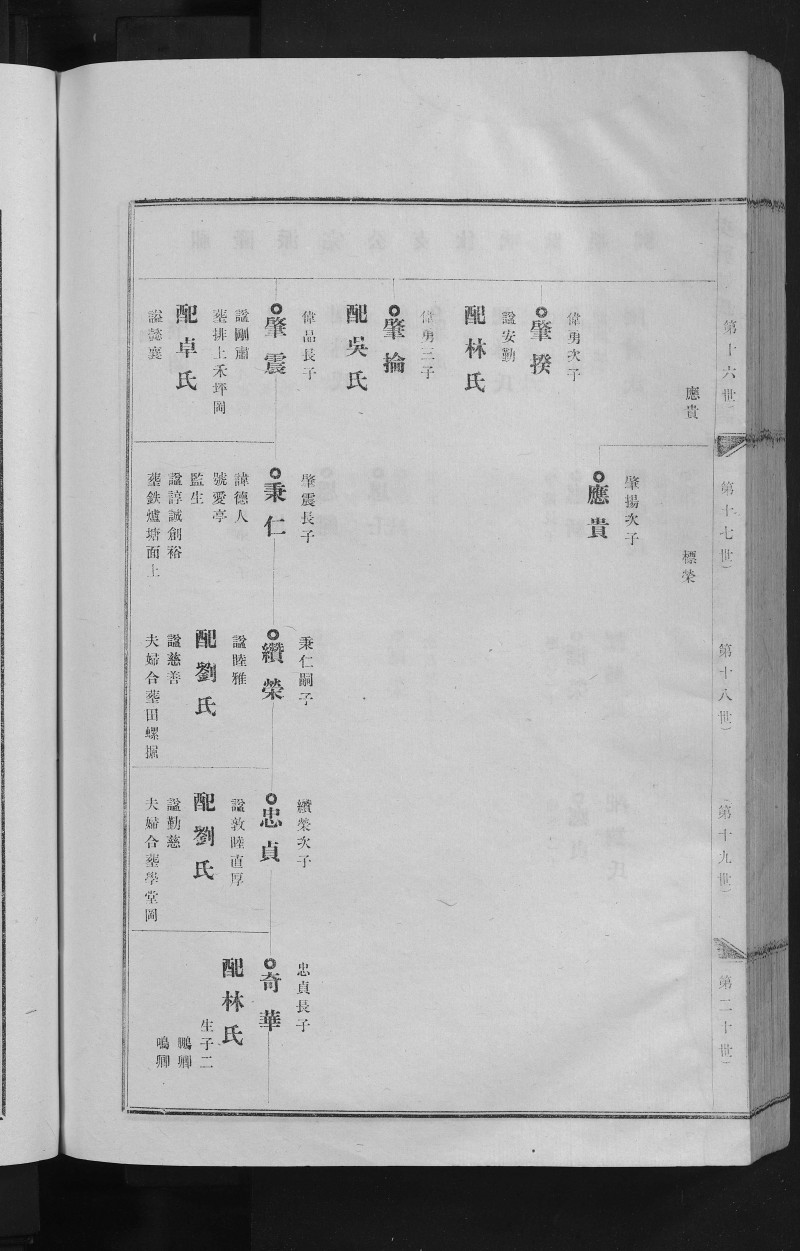 第十六世
應貴
偉勇次子
肇揆
諡安勤
配林氏
偉勇三子
肇掄
配吳氏
偉品長子
肇震
諡剛肅
塟排上禾坪岡
配卓氏
諡懿襄
第十七世
標榮
肇揚次子
應貴
肇震長子
秉仁
諱德人
號愛亭
監生
諡諄誠創裕
塟鉄爐塘面上
第十八世
秉仁嗣子
纘榮
諡睦雅
配劉氏
諡慈善
夫婦合塟田螺掘
第十九世
纘榮次子
忠貞
諡敦睦直厚
配劉氏
諡勤慈
夫婦合塟學堂岡
第二十世
忠貞長子
奇華
配林氏
生子二
鵬卿
鳴卿